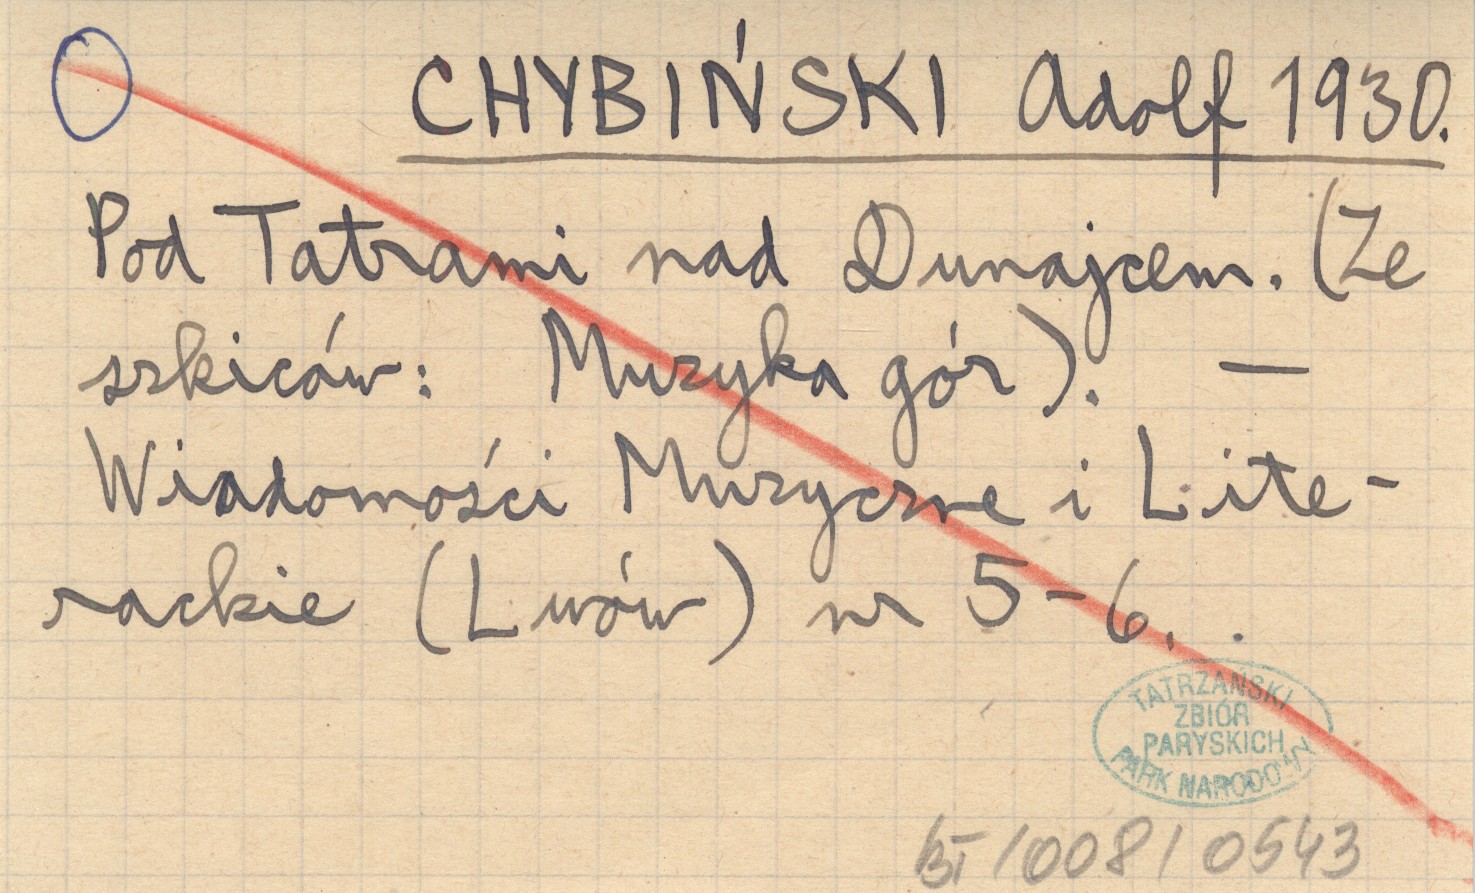 CHYBIŃSKI Adolf 1930.
Pod Tatrami nad Dunajcem. (Ze
szkiców: Muzyka gór). —
Wiadomości Muzyczne i Lite-
rackie (Lwów) nr 5-6. .
TATRZAŃSKI
ZBIÓR
PARYSKICH
PARK NARODOWY
BT/008/0543